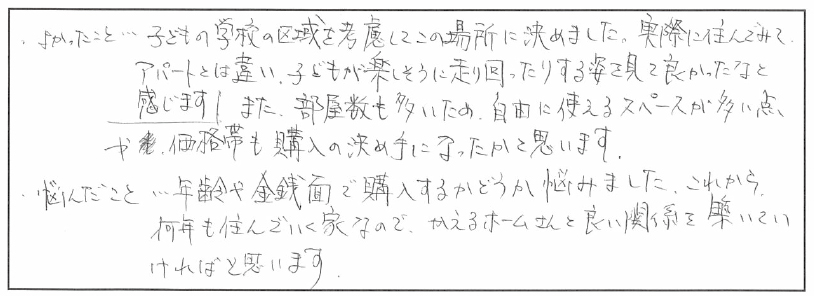 ・よかったこと…子どもの学校の区域を考慮してこの場所に決めました。実際に住んでみて、
アパートとは違い、子どもが楽しそうに走り回ったりする姿を見て良かったなと
感じます! また、部屋数も多いため、自由に使えるスペースが多い点、
や、価格帯も購入の決め手になったかと思います。
・悩んだこと …年齢や金銭面で購入するかどうか悩みました。これから、
何年も住んでいく家なので、かえるホームさんと良い関係を築いてい
ければと思います。